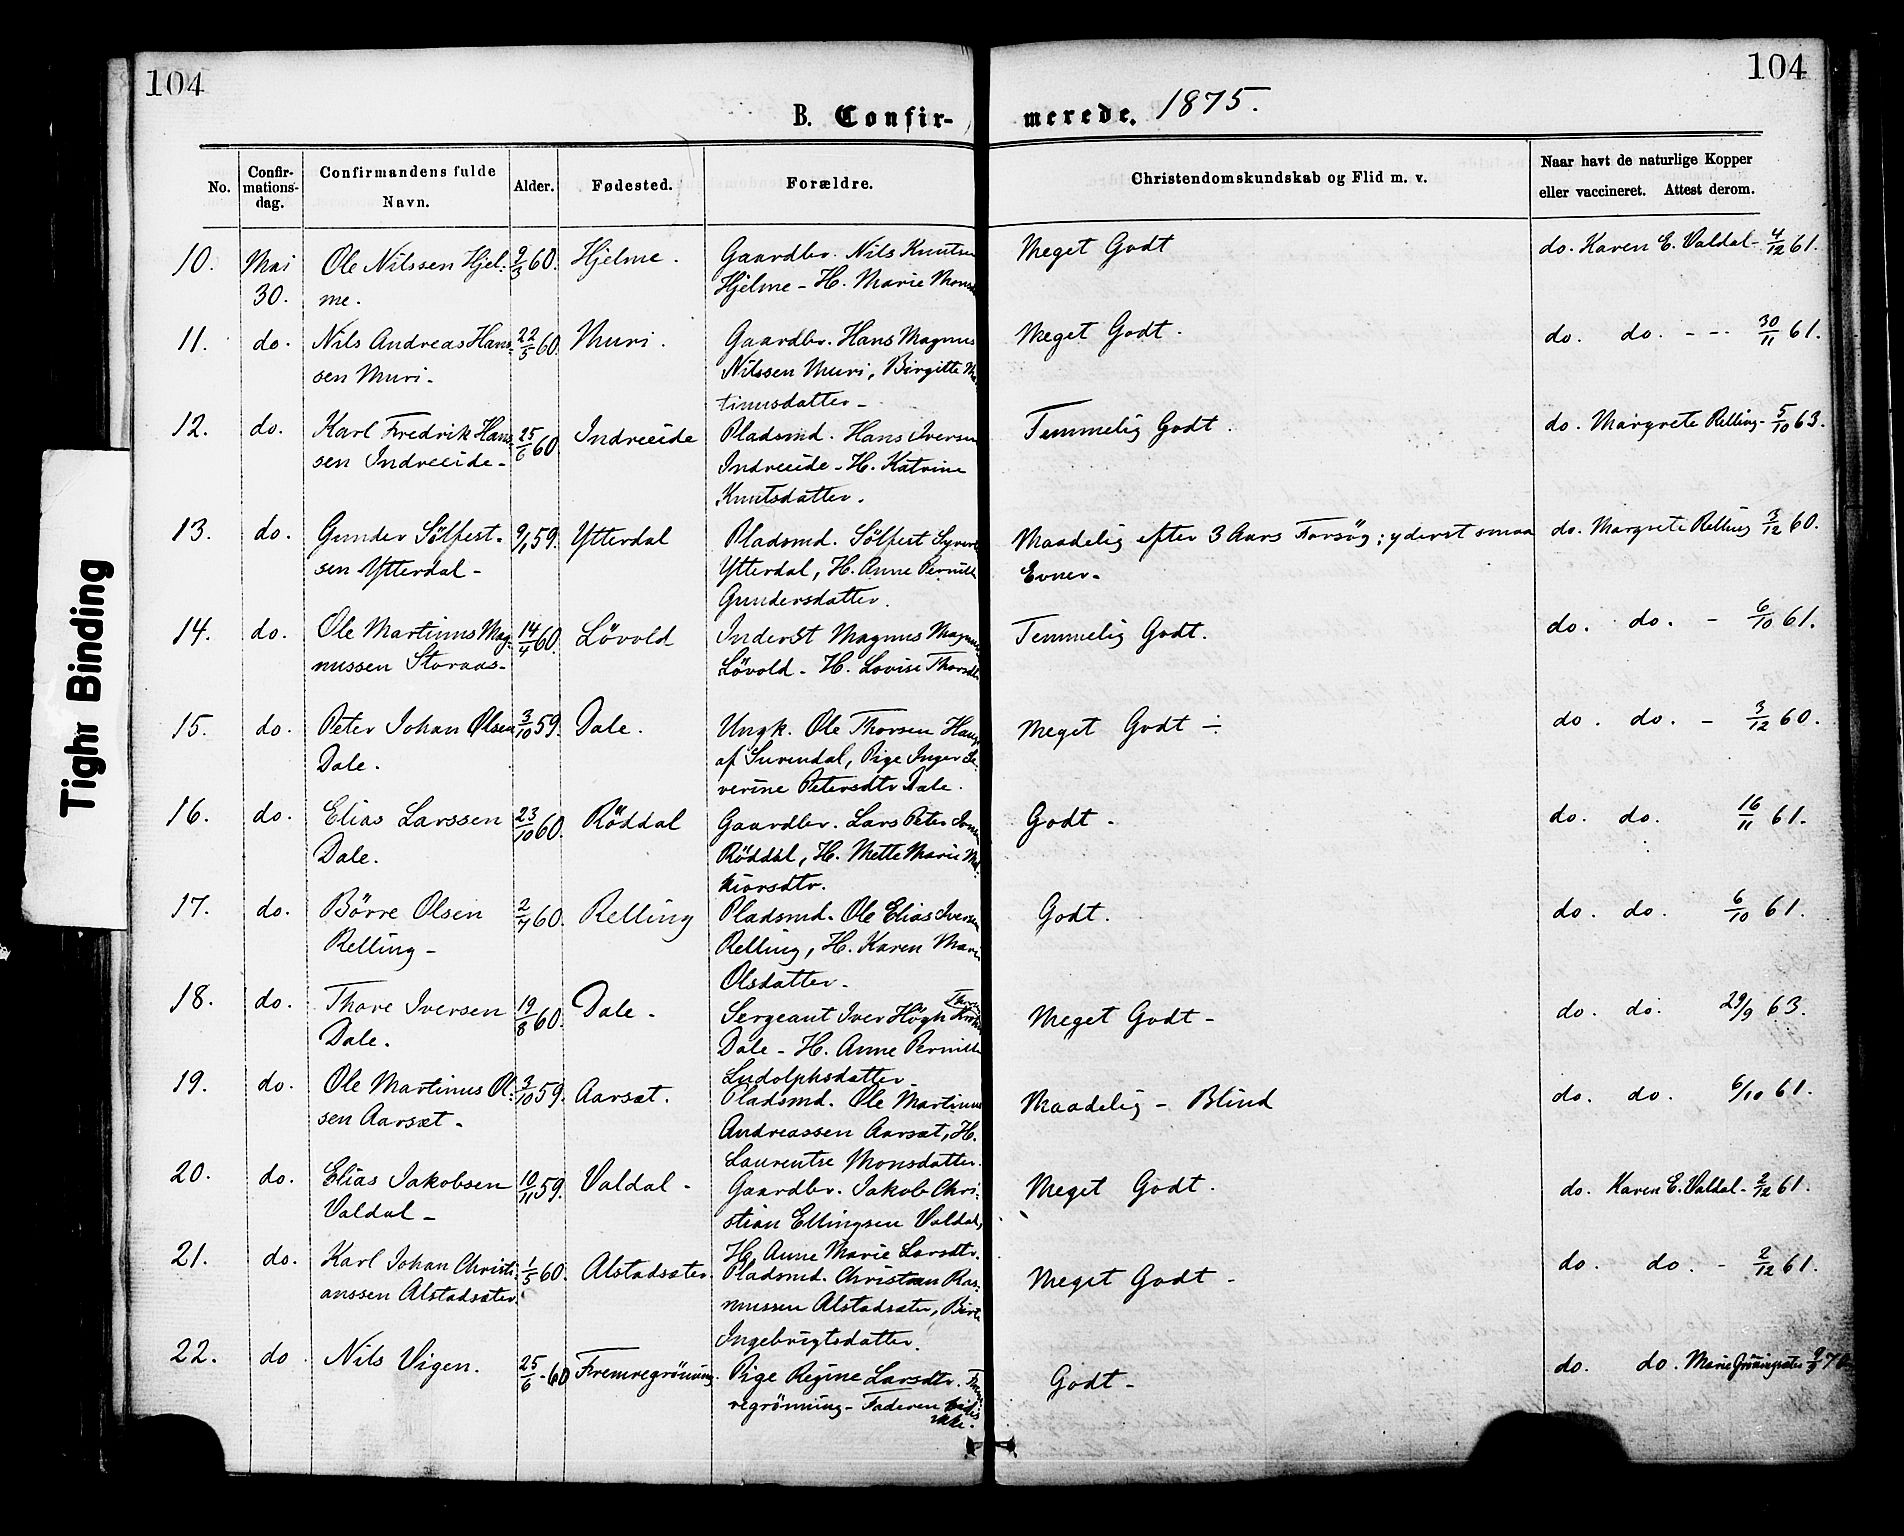 104
104
B. Confir-merede. 1875.
No. Confir-mations-dag. Confirmandens fulde Navn. Alder. Fødested. Forældre. Christendomskundskab og Flid m. v. Naar havt de naturlige Kopper eller vaccineret. Attest derom.
10. Mai 30. Ole Nilssen Hjel- 9/3 60. Hjelme. Gaardbr. Nils Knutsen Meget Godt do. Karen E. Valdal - 4/12 61.
me. Hjelme - H. Marie Mons
11. do. Nils Andreas Hans- 22/5 60. Muri. Gaardbr. Hans Magnus Meget Godt. do. do. - - 30/11 61.
sen Muri. Nilssen Muri, Birgitte Ma-
tinusdatter -
12. do. Karl Fredrik Hans- 25/6 60 Indreeide Pladsmd. Hans Iversen Temmelig Godt. do. Margrete Relling - 5/10 63.
sen Indreeide - Indreeide - H. Katrine
Knutsdatter.
13. do. Gunder Sölfest- 9/1 59. Ytterdal Pladsmd. Sölfest Syvert Maadelig efter 3 Aars Forsøg; yderst smaa do. Margrete Relling 3/12 60.
sen Ytterdal - Ytterdal, H. Anne Pernille Evner -
Gundersdatter.
14. do. Ole Martinus Mag- 14/4 60. Lövold Inderst Magnus Magnus Temmelig Godt. do. do. - 6/10 61.
nussen Storaas - Lövold - H. Lovise Thorsdtr
15. do. Peter Johan Olsen 3/10 59. Dale. Ungk. Ole Thorsen Hang Meget Godt -:- do. do. - 3/12 60.
Dale. af Surendal, Pige Inger Se-
verine Petersdtr Dale.
16. do. Elias Larssen 23/10 60. Röddal Gaardbr. Lars Peter Godt - do. do. 16/11 61.
Dale. Röddal, H. Mette Marie Mel-
kiorsdtr.
17. do. Börre Olsen 2/7 60. Relling Pladsmd. Ole Elias Iversen Godt. do. do. 6/10 61.
Relling - Relling, H. Karen Marie
Olsdatter -
18. do. Thore Iversen 19/8 60. Dale - Sergeant Iver Högh Meget Godt - do. do. 29/9 63.
Dale. Dale - H. Anne Pernille
Ludolphsdatter -
19. do. Ole Martinus Ol- 3/10 59. Aarsæt. Pladsmd. Ole Martinus Maadelig - Blind do. do. 6/10 61.
sen Aarsæt - Andreassen Aarsæt, H.
Laurentse Monsdatter.
20. do. Elias Jakobsen 10/11 59. Valdal - Gaardbr. Jakob Chri- Meget Godt. do. Karen E. Valdal - 2/12 61.
Valdal - stian Ellingsen Valdal,
H. Anne Marie Larsdtr.
21. do. Karl Johan Christi- 1/5 60. Alstadsæter. Pladsmd. Christian Ras- Meget Godt - do. do. - 2/12 61.
anssen Alstadsæter. mussen Alstadsæter, Birte
Ingebrigtsdatter.
22. do Nils Vigen. 25/6 - 60 Fremregrönning. Pige Regine Larsdtr. Frem- Godt - do. do. Marie Grönningsæter
regrönning - Faderen vides
ikke.
Tighr Binding